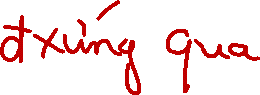 đxứng qua